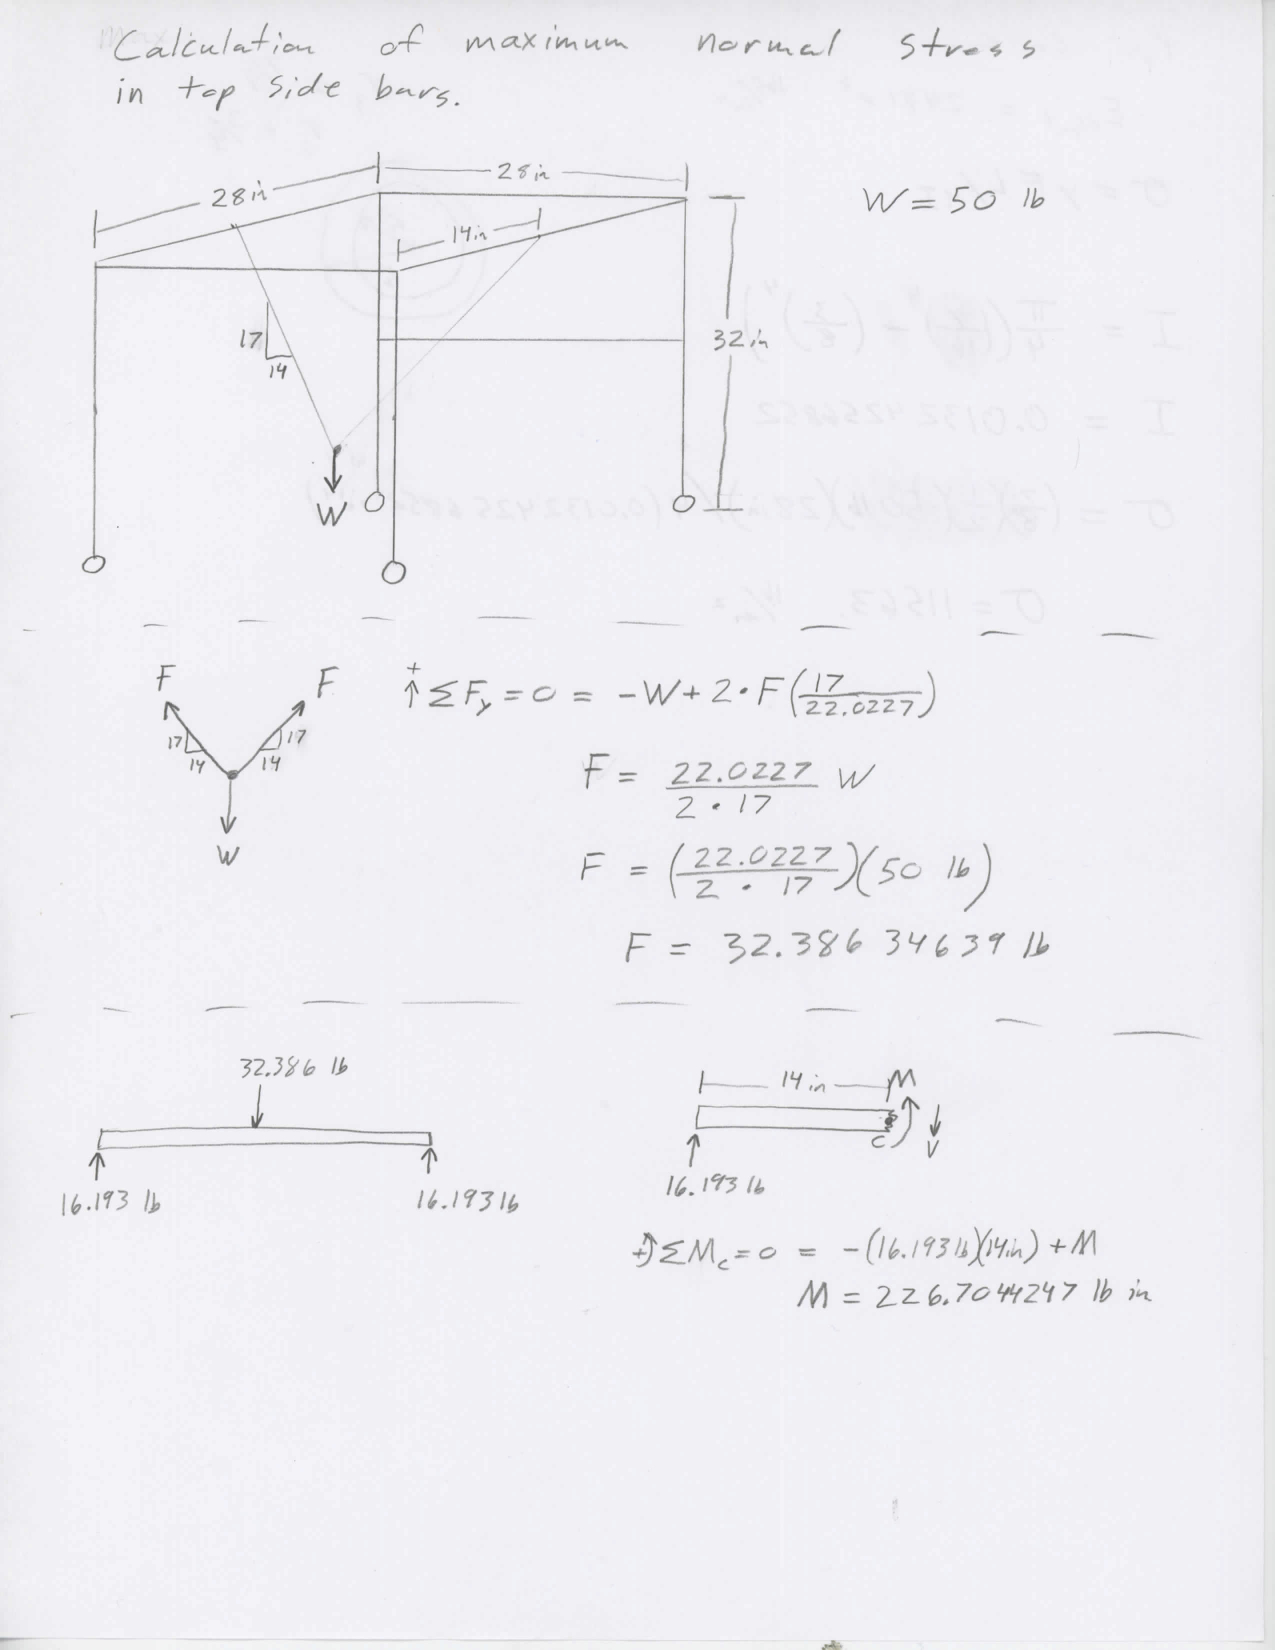 Calculation of maximum normal stress
in top side bars.
28in
28in
W = 50 lb
14in
17
14
32in
W
F
F
17
14
17
14
W
+↑ ΣFy = 0 = -W + 2 · F(17/22.0227)
F = 22.0227/(2 · 17) W
F = (22.0227/(2 · 17))(50 lb)
F = 32.38634639 lb
32.386 lb
16.193 lb
16.193 lb
14 in
M
C
V
16.193 lb
+↺ ΣMc = 0 = -(16.193 lb)(14in) + M
M = 226.7044247 lb in